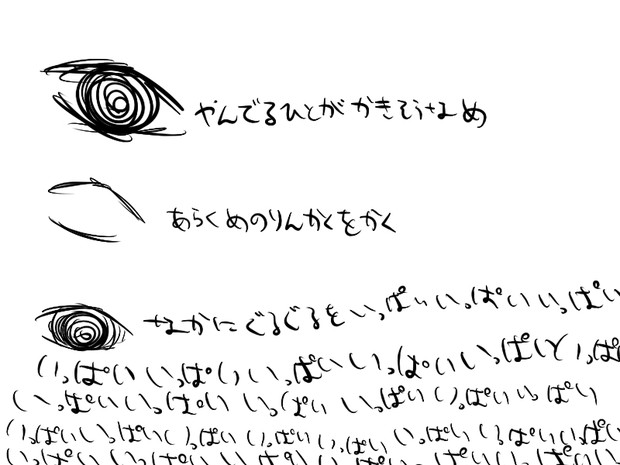 やんでるひとがかきそうなめ
あらくめのりんかくをかく
なかにぐるぐるをいっぱいいっぱいいっぱい
いっぱいいっぱいいっぱいいっぱいいっぱい
いっぱいいっぱいいっぱいいっぱいいっぱい
いっぱいいっぱいいっぱいいっぱいいっぱいいっぱいいっぱい